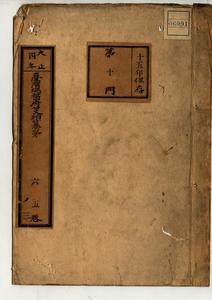 十五年保存
第十門
大正四年
臺灣總督府公文類纂
六五卷
ノ三